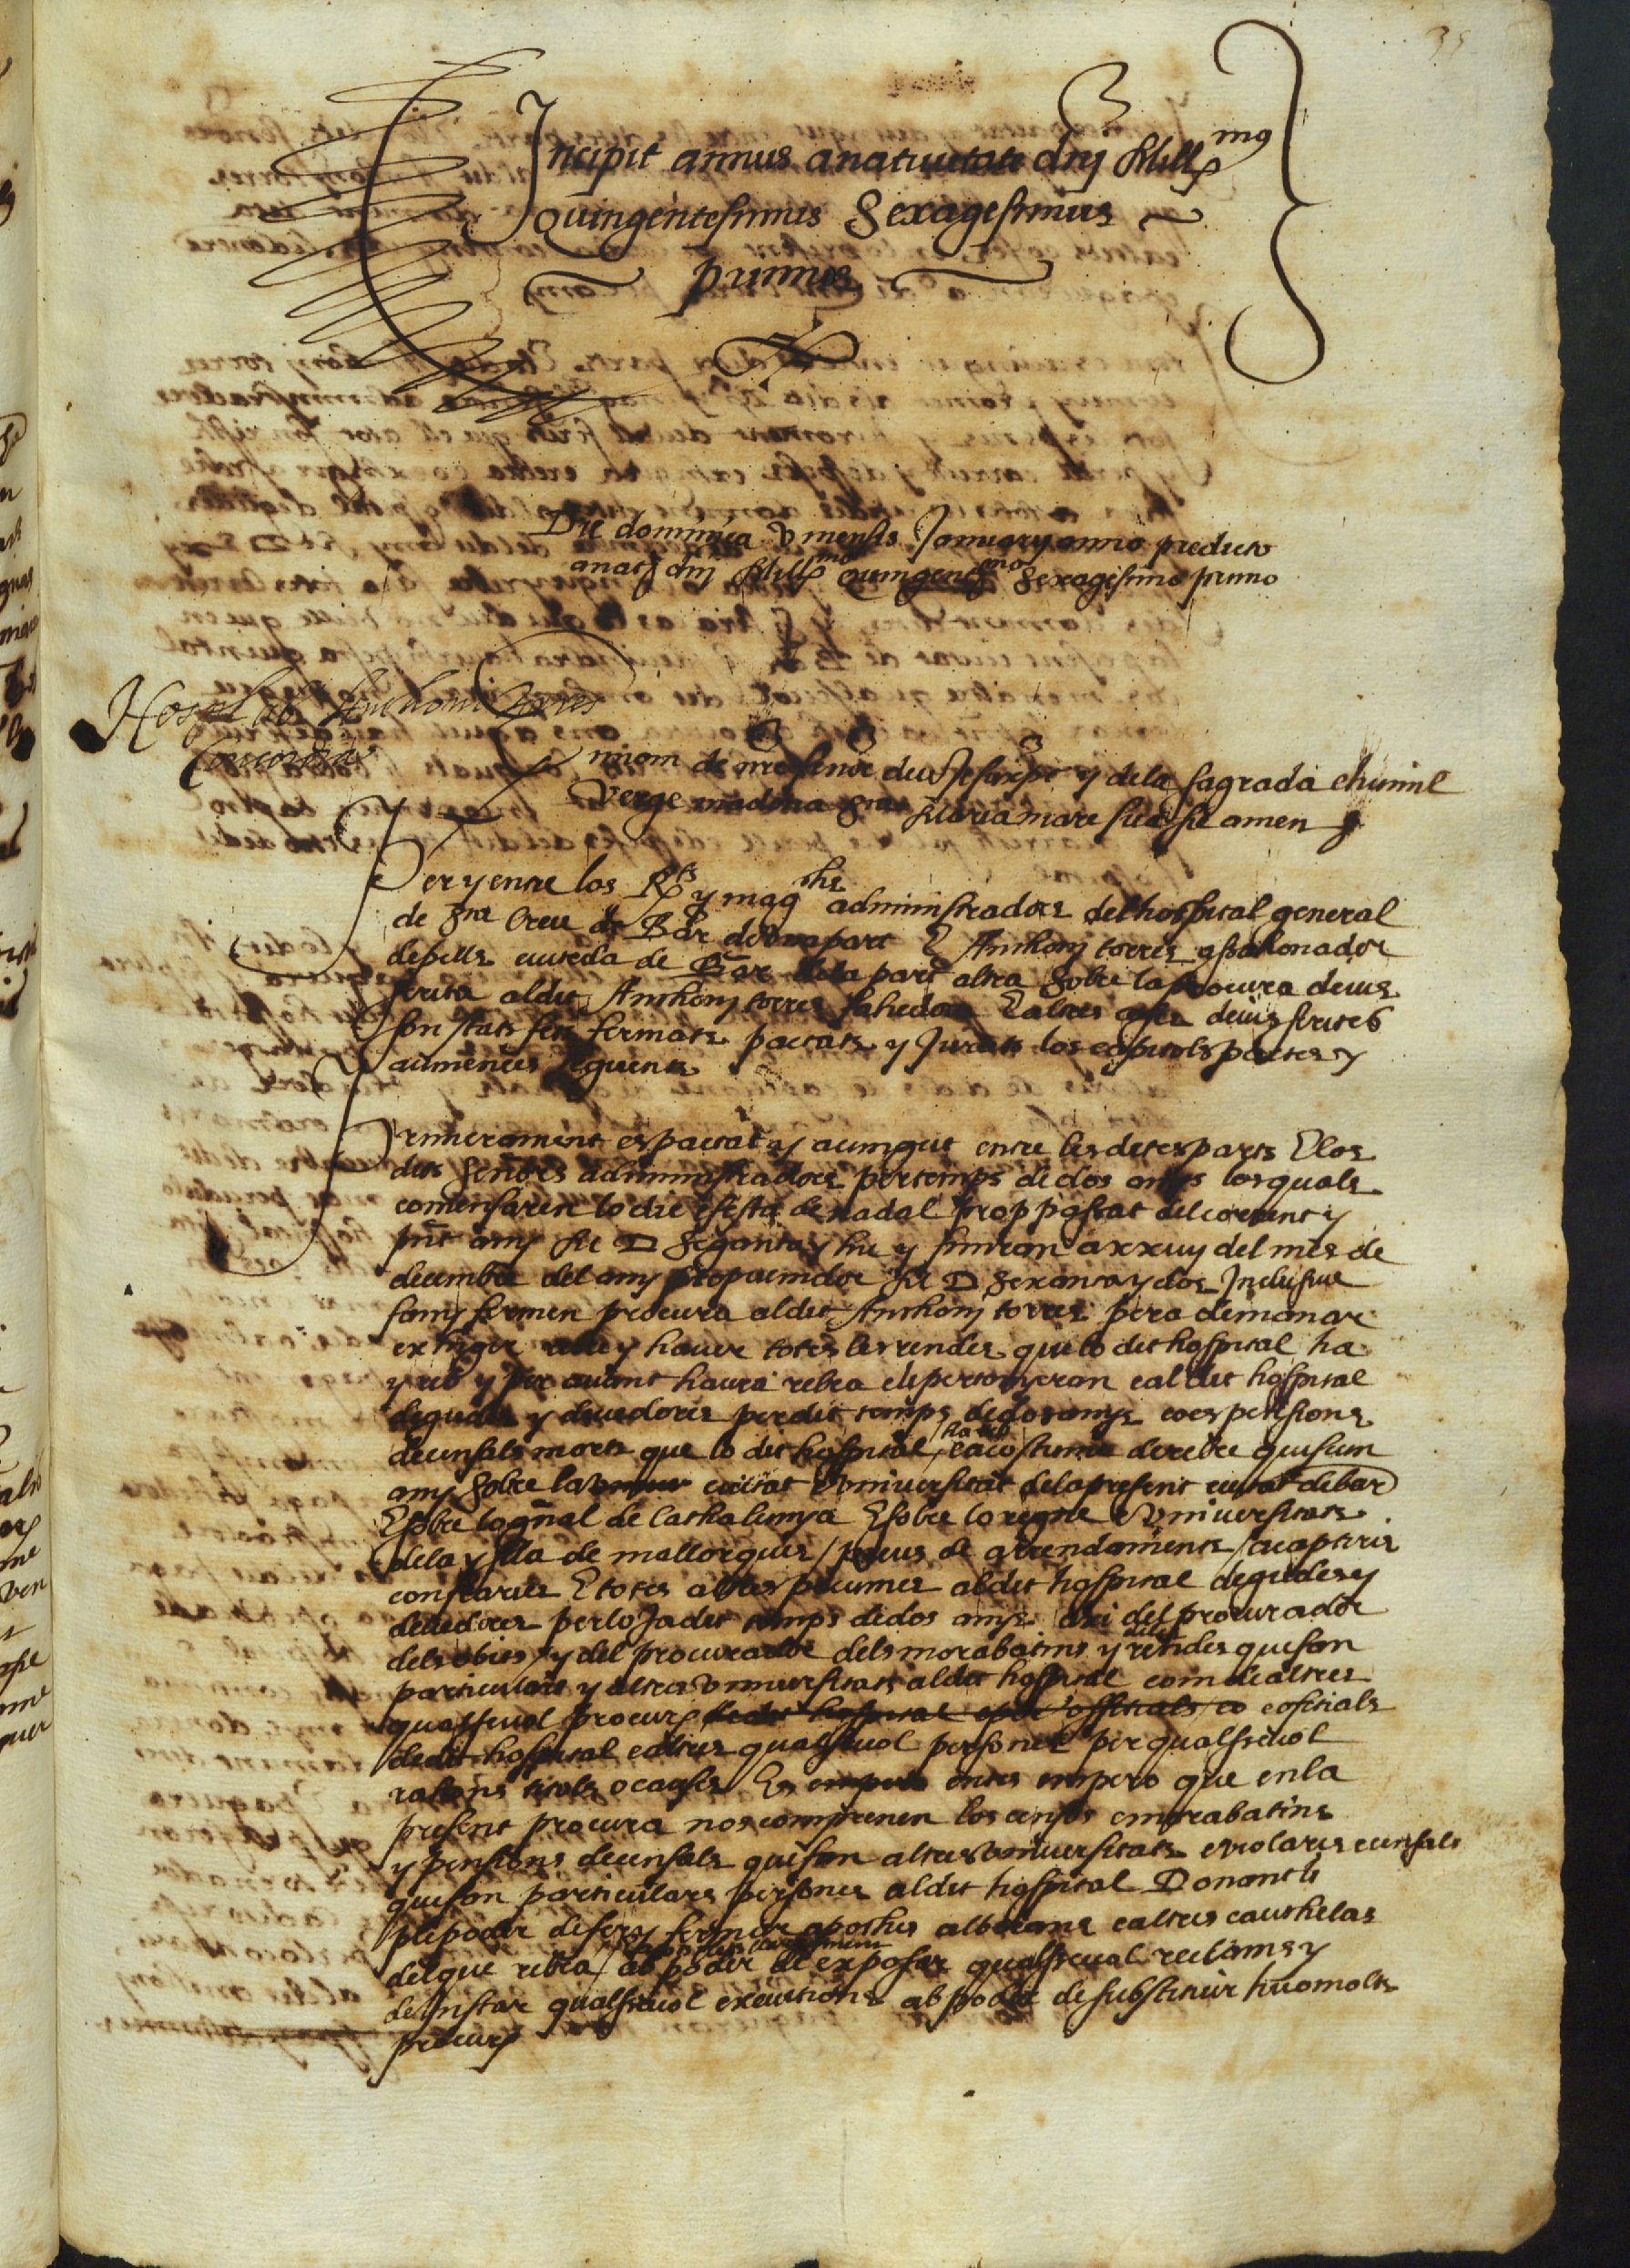 35
Incipit annus a nativitate dnj Mill mo
quingentesimus Sexagesimus
primus
Die dominica v mensis Januarij anno predicto
a nat dnj Mill mo quingent mo sexagesimo primo
Hospl ab Anthoni Torres
Concordia
En nom de nre senor deu Jesuxpt y dela sagrada e humil
Verge madona Sta Maria mare sua sie amen
Per y entre los Rts y magchs administradors del hospital general
de Sta Creu de Bar de una part E Anthonj torres assahonador
de pells ciuteda de Bar dela part altra sobre la procura deius
scrita al dit Anthonj torres fahedora E altres coses deius scrites
son stats fets fermats pactats y Jurats los capitols pactes y
auinences seguents
Primerament es pactat y auingut entre les dites parts E los
dits senors administradors per temps de dos anys los quals
comensaren lo die e festa de nadal prop passat del corrent y
pnt any M D Sexanta y hu y finiran a xxiiij del mes de
decembre del any propuenidor M D Sexanta y dos Inclusiue
fan y fermen procura al dit Anthonj torres pera demanar
exhigir rebre y hauer totes les rendes que lo dit hospital ha
y reb y per auant haura rebra e li pertanyeran e al dit hospital
degudes y deuedores per dit temps de dos anys co es pensions
de censals morts que lo dit hospital ha reb e acostuma de rebre quiscun
any sobre la ciutat e Vniuersitat dela present ciutat de bar
E sobre lo gnal de Cathalunya E sobre lo regne e Vniuersitats
dela ylla de mallorques / preus de arrendaments / acaptiris
confraries E totes altres pecunies al dit hospital degudes y
deuedores per lo Ja dit temps de dos anys axi del procurador
dels obits / y del procurador dels morabatins y deles rendes que fan
particulars y altres vniuersitats al dit hospital com de altres
qualseuol procurs de dit hospital offitials / o offitials
de dit hospital e altres qualseuol persones per qualseuol
rahons titols o causes Es empero entes empero que en la
present procura nos comprenen los censos e morabatins
y pensions de censals que fan altres vniuersitats e violaris e censals
que fan particulars persones al dit hospital Donant li
ple poder de fer y fermar apoches albarans e altres cauthelas
del que rebra / ab poder de exposar qualseuol reclams y
de Instar qualseuol executions ab poder de substituir hu o molts
procurs